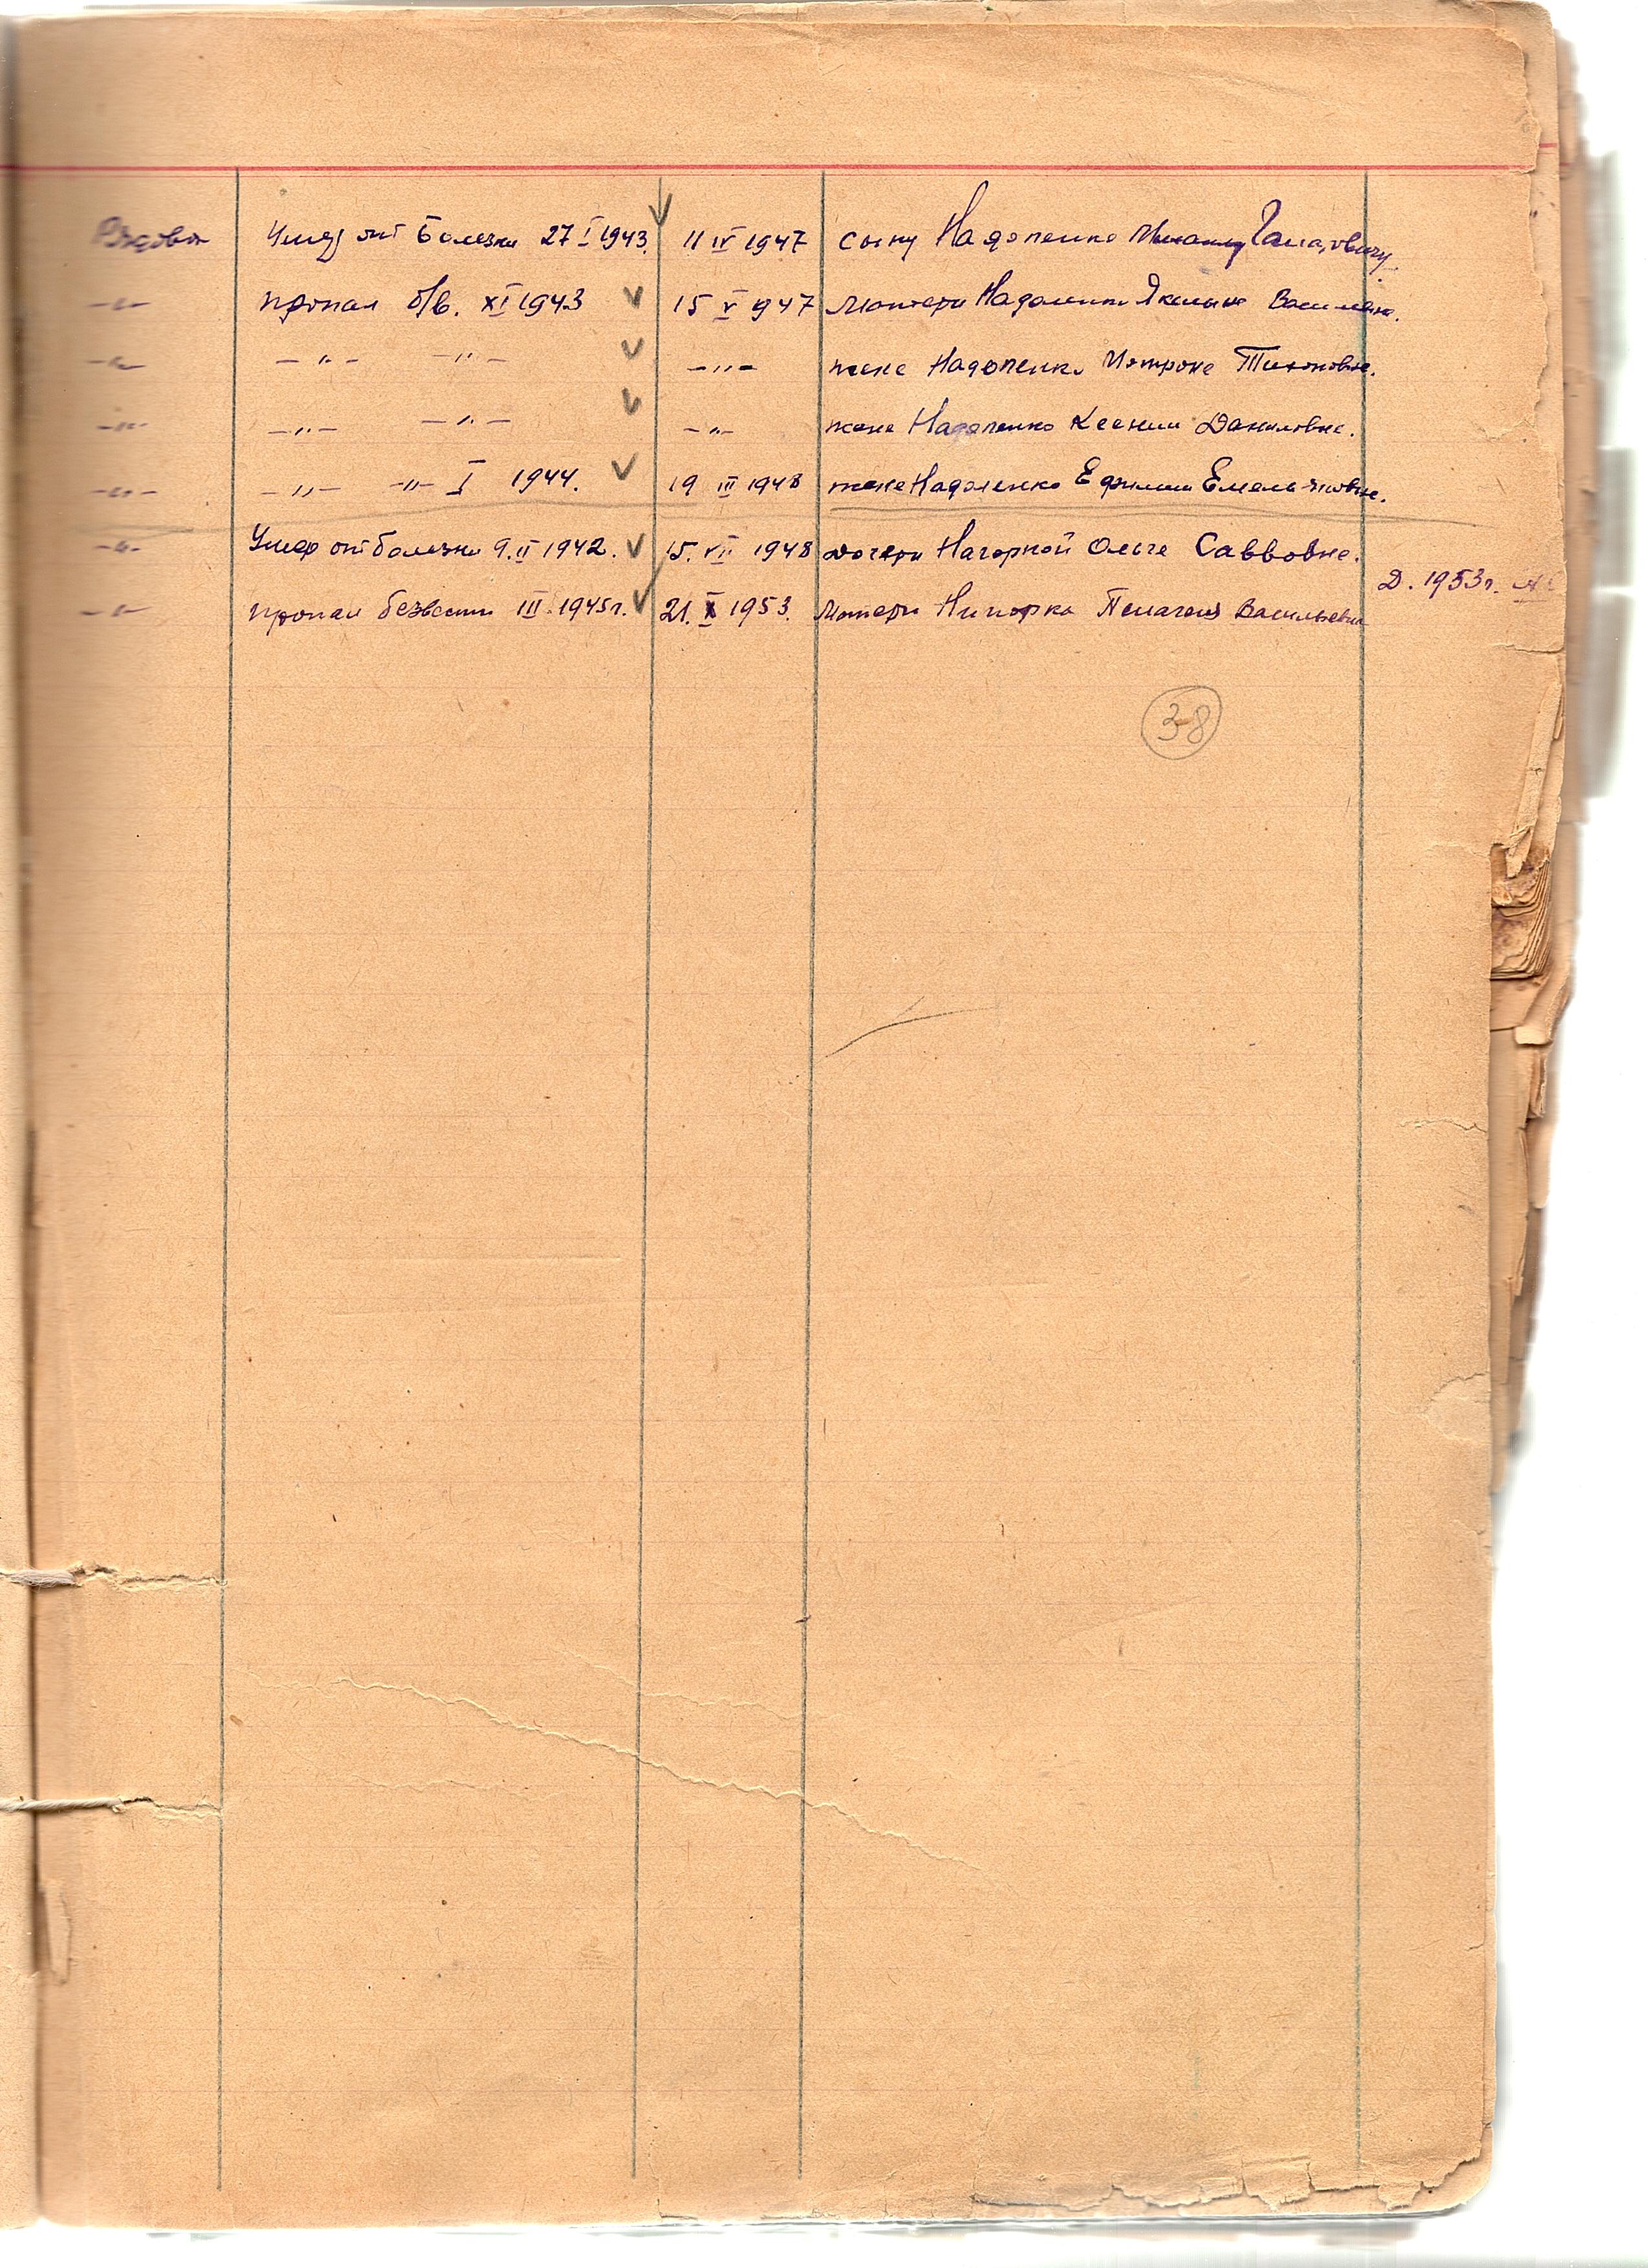 Рядовой Умер от болезни 27 I 1943. 11 IV 1947 сыну Надоленко Михаилу
-"- пропал б/в. XI 1943 15 V 1947 матери Надоленко Якелине
-"- -"- -"- -"- жене Надоленко Мотроне Тихоновне.
-"- -"- -"- -"- жене Надоленко Ксении Даниловне.
-"- -"- -"- I 1944. 19 III 1948 жене Надоленко Ефимии Емельяновне.
-"- Умер от болезни 9. II 1942. 15. VII 1948 дочери Нагорной Ольге Саввовне.
Д. 1953г.
-"- пропал безвести III 1945г. 21. X 1953. Матери Нипорка Пелагея Васильевна
38